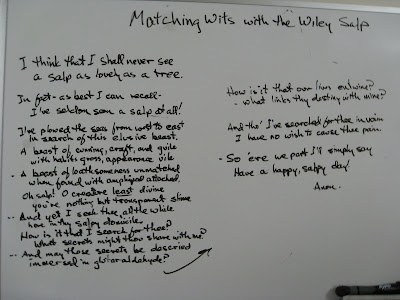 Matching Wits with the Wiley Salp
I think that I shall never see
a salp as lovely as a tree.
In fact - as best I can recall -
I've seldom seen a salp at all!
I've plowed the seas from west to east
In search of this elusive beast.
A beast of cunning, craft, and guile
with habits gross, appearance vile
- A beast of loathsomeness unmatched
when found with amphipod attached.
Oh salp! O creature least divine
you're nothing but transparent slime
-- And yet I seek thee all the while
here in thy salpy domicile.
How is it that I search for thee?
What secrets might thou share with me?
-- And may those secrets be descried
immersed in glutaraldehyde?
How is it that our lives entwine?
- what links thy destiny with mine?
And tho' I've searched for thee in vain
I have no wish to cause thee pain.
- So 'ere we part I'll simply say
Have a happy, salpy day!
Anon.